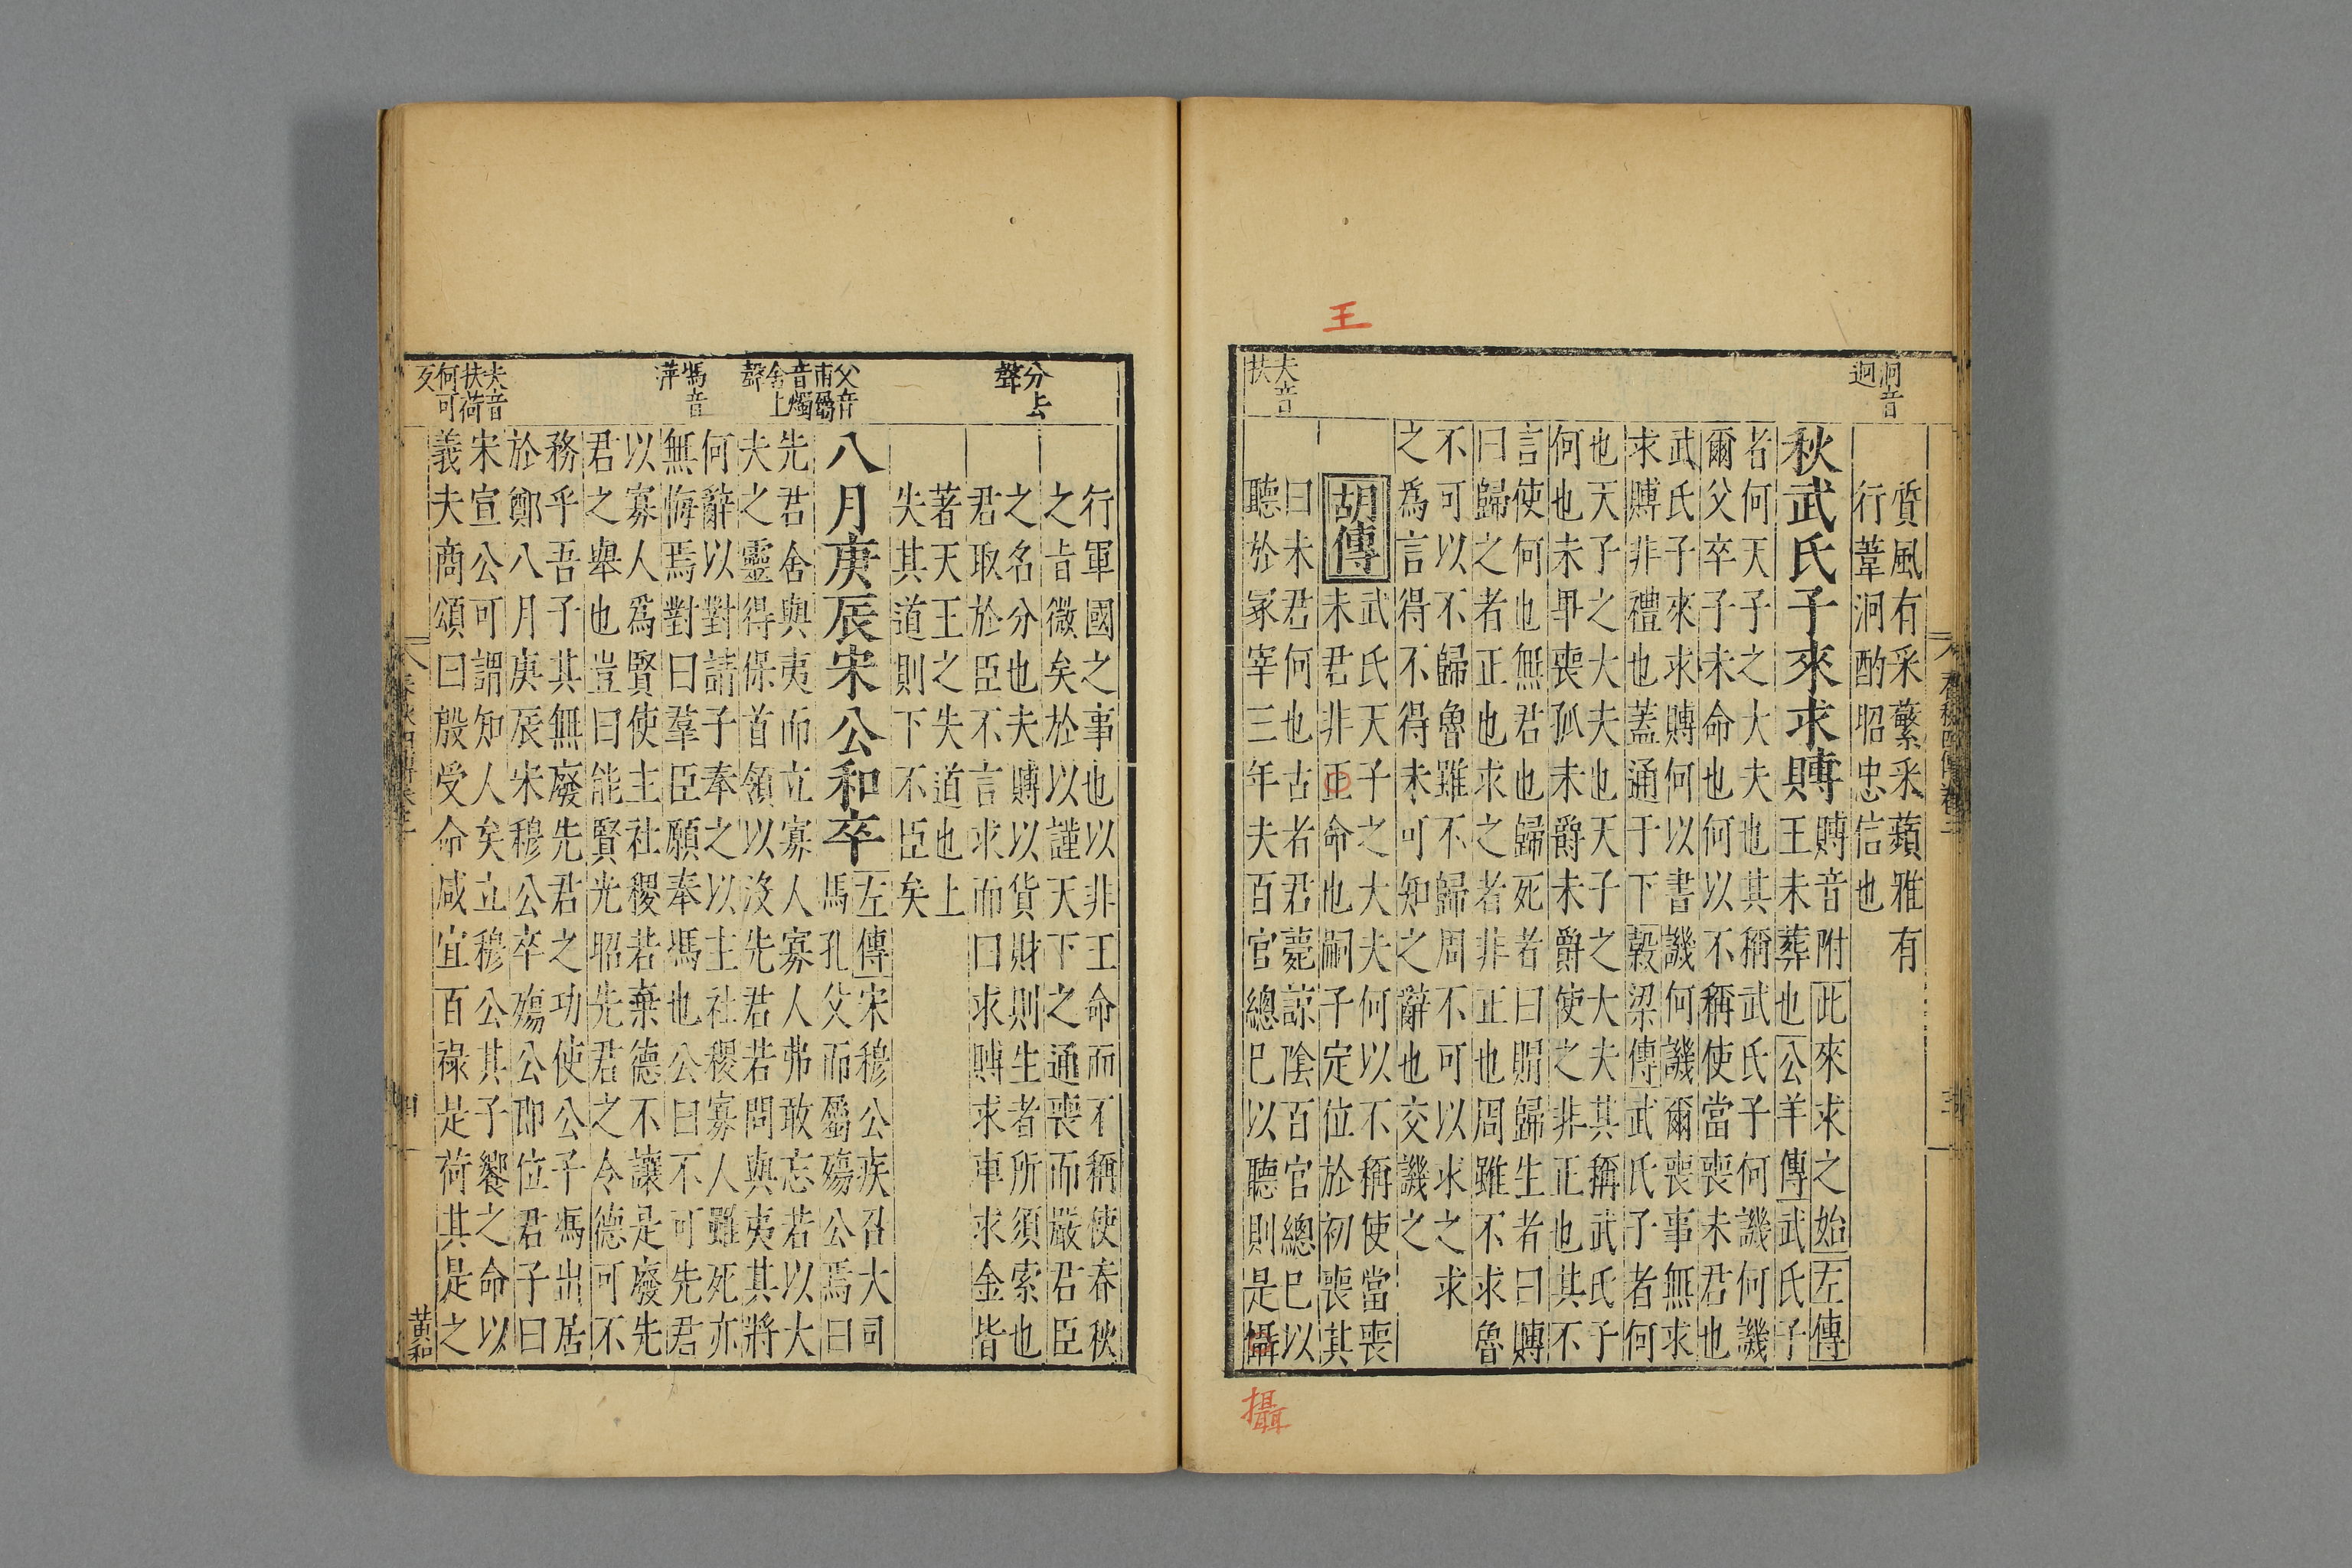 泂音
迥
質風有采蘩采蘋雅有
行葦泂酌昭忠信也
秋武氏子來求賻
賻音附
王未葬也
此來求之始
左傳
公羊傳
武氏子
者何天子之大夫也其稱武氏子何譏何譏
爾父卒子未命也何以不稱使當喪未君也
武氏子來求賻何以書譏何譏爾喪事無求
求賻非禮也蓋通于下
穀梁傳
武氏子者何
也天子之大夫也天子之大夫其稱武氏子
何也未畢喪孤未爵未爵使之非正也其不
言使何也無君也歸死者曰賵歸生者曰賻
曰歸之者正也求之者非正也周雖不求魯
不可以不歸魯雖不歸周不可以求之求
之爲言得不得未可知之辭也交譏之
王
胡傳
武氏天子之大夫何以不稱使當喪
未君非正命也嗣子定位於初喪其
曰未君何也古者君薨諒陰百官總已以
聽於冢宰三年夫百官總已以聽則是攝
夫音
扶
攝
行軍國之事也以非王命而不稱使春秋
之旨微矣於以謹天下之通喪而嚴君臣
分去
聲
之名分也夫賻以貨財則生者所須索也
君取於臣不言求而曰求賻求車求金皆
著天王之失道也上
失其道則下不臣矣
八月庚辰宋公和卒
父音
甫屬
音燭
舍上
聲
左傳
宋穆公疾召大司
馬孔父而屬殤公焉曰
先君舍與夷而立寡人寡人弗敢忘若以大
夫之靈得保首領以沒先君若問與夷其將
何辭以對請子奉之以主社稷寡人雖死亦
無悔焉對曰羣臣願奉馮也公曰不可先君
馮音
萍
以寡人爲賢使主社稷若棄德不讓是廢先
君之舉也豈曰能賢光昭先君之令德可不
務乎吾子其無廢先君之功使公子馮出居
於鄭八月庚辰宋穆公卒殤公即位君子曰
宋宣公可謂知人矣立穆公其子饗之命以
義夫商頌曰殷受命咸宜百祿是荷其是之
夫音
扶荷
何可
反
黄和